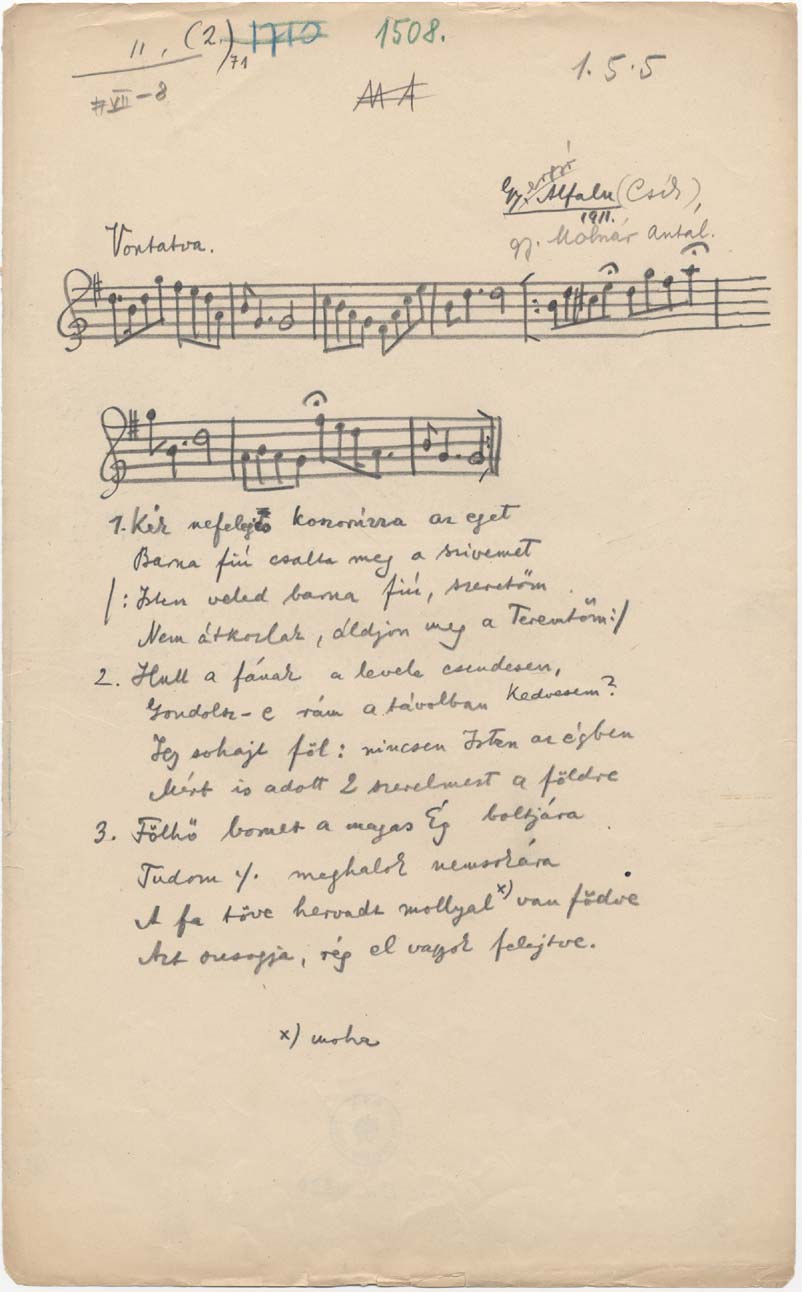 II, (2.)/71 1710 1508.
1.5.5
VII-8
MA
Gyergyó Alfalu (Csík),
1911.
gy. Molnár Antal.
Vontatva.
1. Kék nefelejts koszorúzza az eget
Barna fiú csalta meg a szivemet
/: Isten veled barna fiú, szeretőm
Nem átkozlak, áldjon meg a Teremtőm :/
2. Hull a fának a levele csendesen,
Gondolsz-e rám a távolban kedvesem?
Egy sohajt föl: nincsen Isten az égben
Mért is adott 2 szerelmest a földre
3. Fölhő borult a magas Ég boltjára
Tudom ./. meghalok nemsokára
A fa töve hervadt mollyal x) van födve
Azt susogja, rég el vagyok felejtve.
x) moha